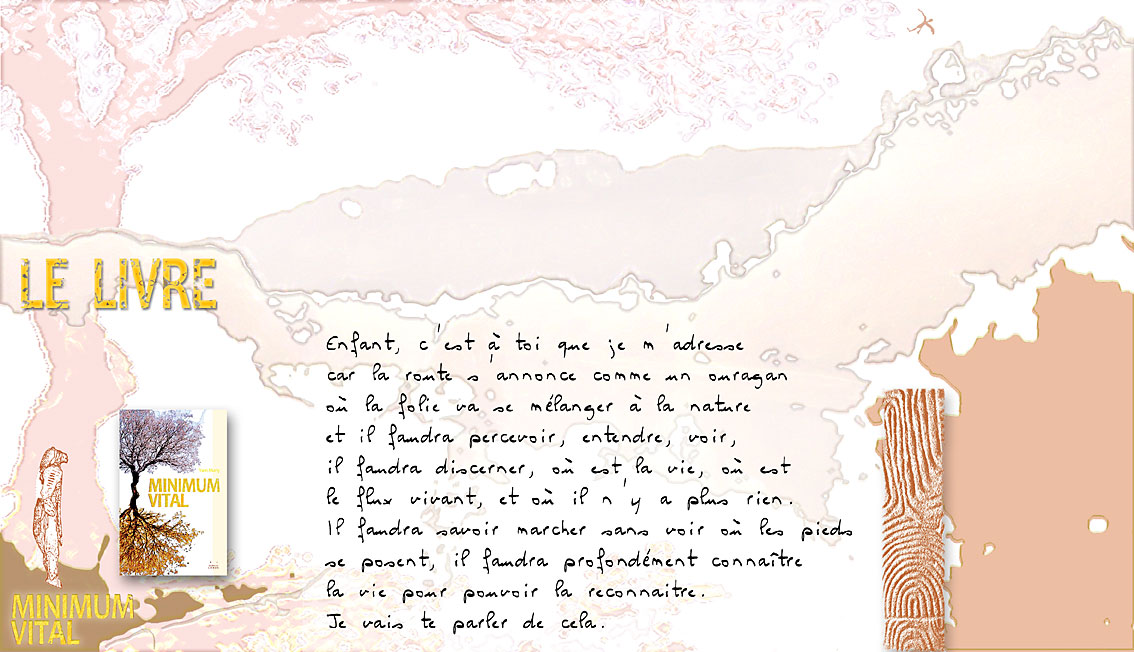 LE LIVRE
Enfant, c'est à toi que je m'adresse
car la route s'annonce comme un ouragan
où la folie va se mélanger à la nature
et il faudra percevoir, entendre, voir,
il faudra discerner, où est la vie, où est
le flux vivant, et où il n'y a plus rien.
Il faudra savoir marcher sans voir où les pieds
se posent, il faudra profondément connaître
la vie pour pouvoir la reconnaitre.
Je vais te parler de cela.
MINIMUM
VITAL
MINIMUM
VITAL